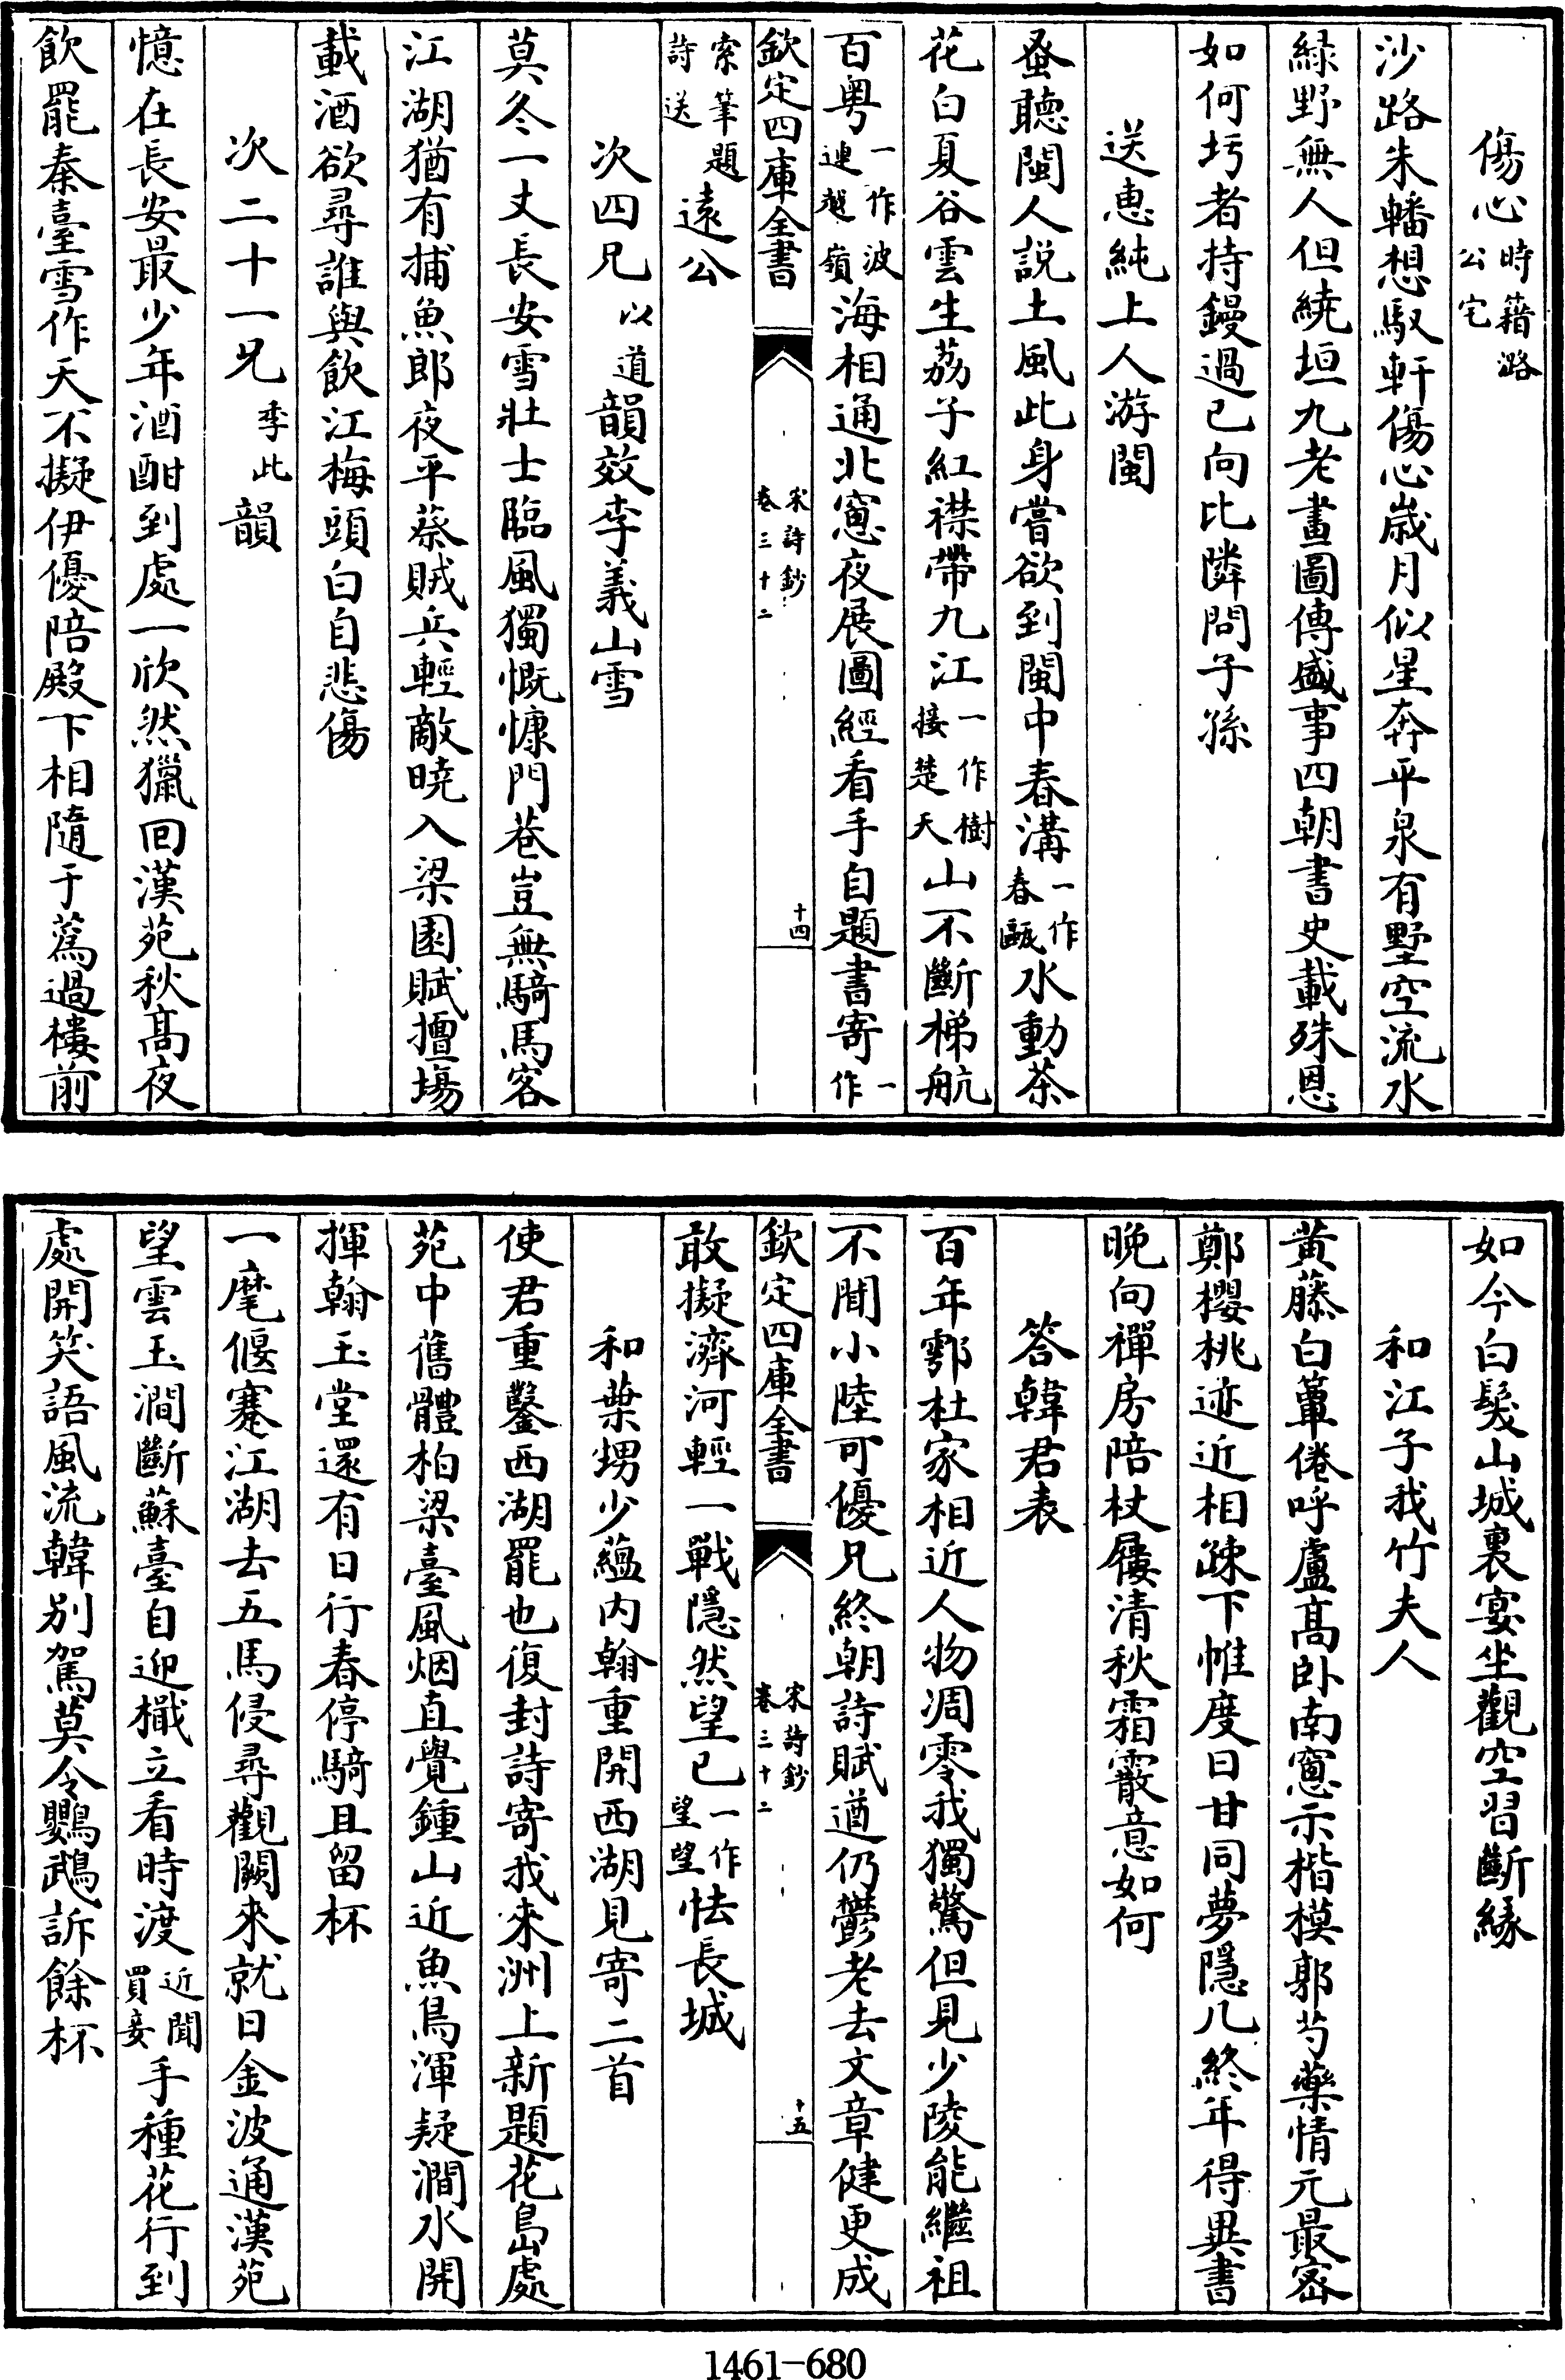 傷心時籍潞公宅
沙路朱轓想馭軒傷心歳月似星奔平泉有墅空流水
緑野無人但繞垣九老畫圖傳盛事四朝書史載殊恩
如何圬者持鏝過已向比隣問子孫
送惠純上人游閩
蚤聽閩人説土風此身嘗欲到閩中春溝一作春甌水動茶
花白夏谷雲生荔子紅襟帶九江一作樹接楚天山不斷梯航
百粤一作波連越嶺海相通北窻夜展圖經看手自題書寄一作
欽定四庫全書
宋詩鈔
卷三十二
十四
索筆題詩送遠公
次四兄以道韻效李義山雪
莫冬一丈長安雪壯士臨風獨慨慷門巷豈無騎馬客
江湖猶有捕魚郎夜平蔡賊兵輕敵曉入梁園賦擅塲
載酒欲尋誰與飲江梅頭白自悲傷
次二十一兄季此韻
憶在長安最少年酒酣到處一欣然獵回漢苑秋髙夜
飲罷秦臺雪作天不擬伊優陪殿下相隨于蒍過樓前
如今白髮山城裏宴坐觀空習斷縁
和江子我竹夫人
黄藤白簟倦呼盧髙卧南窻示楷模郭芍藥情元最宻
鄭櫻桃迹近相疎下帷度日甘同夢隱几終年得異書
晚向禪房陪杖屨清秋霜霰意如何
答韓君表
百年鄠杜家相近人物凋零我獨驚但見少陵能繼祖
不聞小陸可優兄終朝詩賦遒仍鬱老去文章健更成
欽定四庫全書
宋詩鈔
卷三十二
十五
敢擬濟河輕一戰隱然望已一作望望怯長城
和葉甥少蘊内翰重開西湖見寄二首
使君重鑿西湖罷也復封詩寄我來洲上新題花島處
苑中舊體柏梁臺風烟直覺鍾山近魚鳥渾疑澗水開
揮翰玉堂還有日行春停騎且留杯
一麾偃蹇江湖去五馬侵尋觀闕來就日金波通漢苑
望雲玉澗斷蘇臺自迎檝立看時渡近聞買妾手種花行到
處開笑語風流韓别駕莫令鸚鵡訴餘杯
1461-680